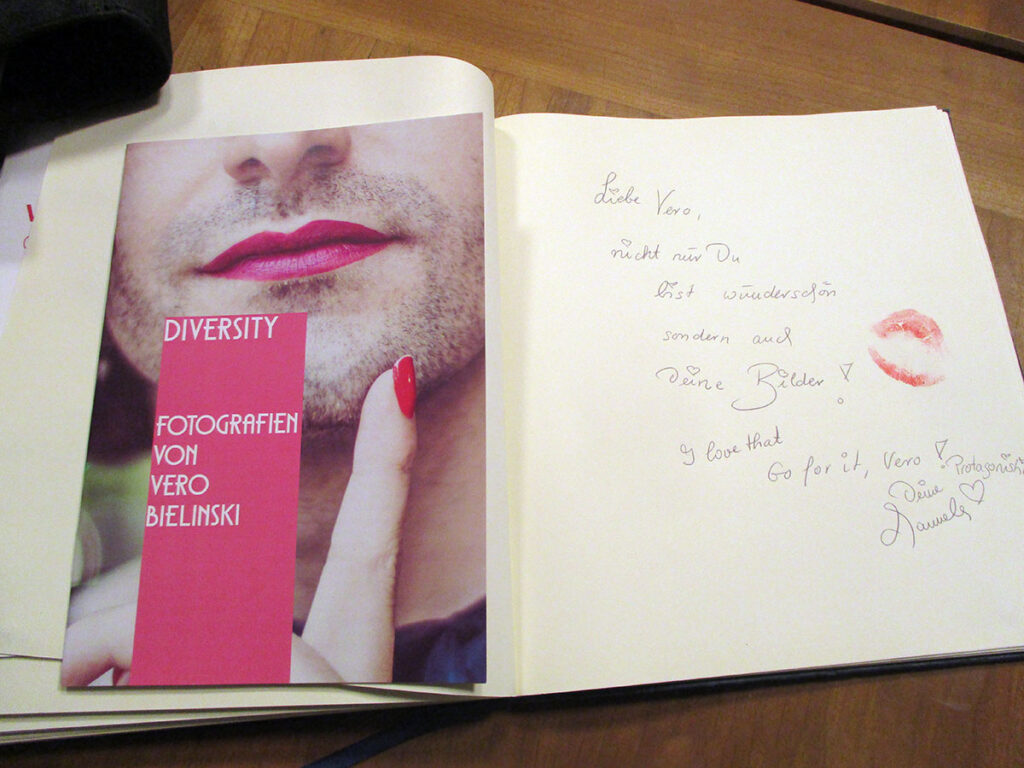 DIVERSITY
FOTOGRAFIEN
VON
VERO
BIELINSKI
Liebe Vero,
nicht nur Du
bist wunderschön
sondern auch
Deine Bilder!
I love that
Go for it, Vero!
Deine Protagonistin